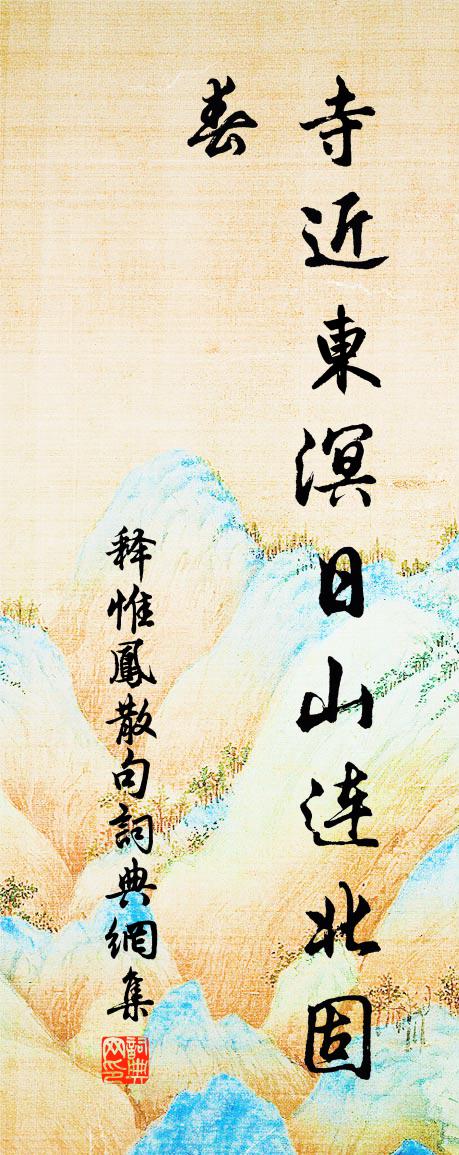 寺近東溟日山连北固
春
释惟鳳散句詞典網集
詞典
网印